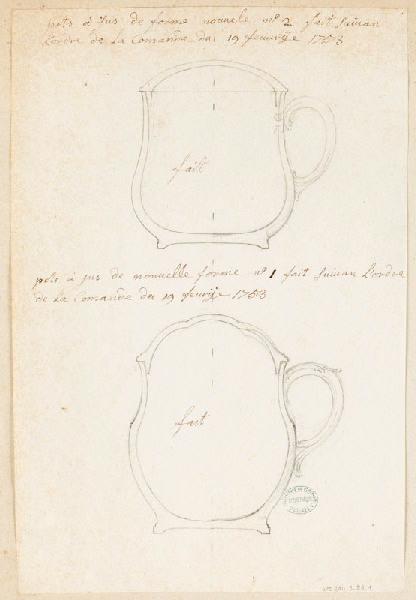 pots à Jus de forme nouvele n° 2 fait Suivan
L'ordre de La Comande du 19 feuvrije 1753
fait
pots à jus de nouvelle forme n° 1 fait Suivan L'ordre
de La Comande du 19 feuvrije 1753
fait